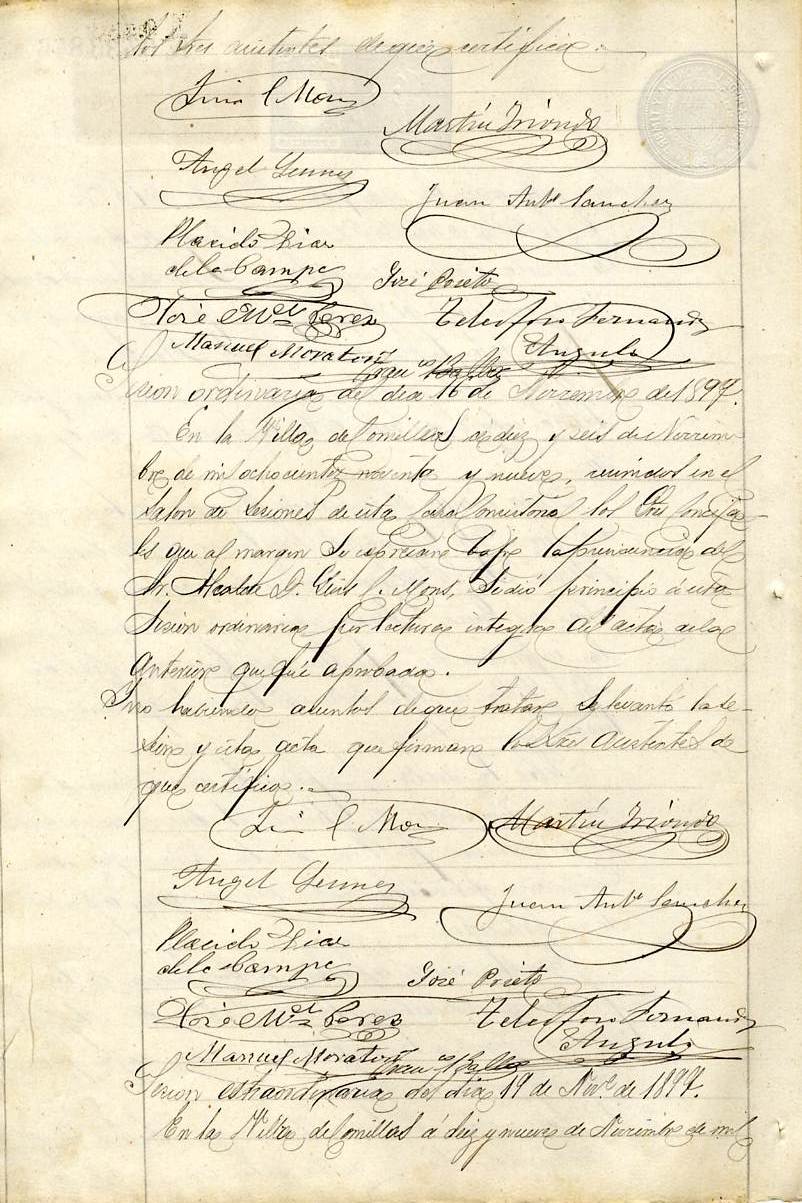 los Sres asistentes de que certifico.
Luis C Mons
Martín Iriondo
Angel Gennes
Juan Antº Sanchez
Placido Diaz
de la Campa
José Prieto
José Mª Perez
Telesforo Fernandez
Angulo
Manuel Moraton
Franco Balles
Sesion ordinaria del dia 16 de Noviembre de 1897.
En la Villa de Comillas á diez y seis de Noviem
bre de mil ochocientos noventa y nueve, reunidos en el
Salon de Sesiones de esta Casa Consistorial los Sres Conceja-
les que al margen se espresan bajo la presidencia del
Sr. Alcalde D. Luis C. Mons, se dió principio á esta
Sesion ordinaria por lectura integra del acta de la
anterior que fué aprobada.
Y no habiendo asuntos de que tratar se levantó la se-
sion y esta acta que firman los Sres asistentes de
que certifico.
Luis C Mons
Martín Iriondo
Angel Gennes
Juan Antº Sanchez
Placido Diaz
de la Campa
José Prieto
José Mª Perez
Telesforo Fernandez
Angulo
Manuel Moraton
Franco Balles
Sesion estraordinaria del dia 19 de Nove. de 1897.
En la Villa de Comillas á diez y nueve de Noviembre de mil